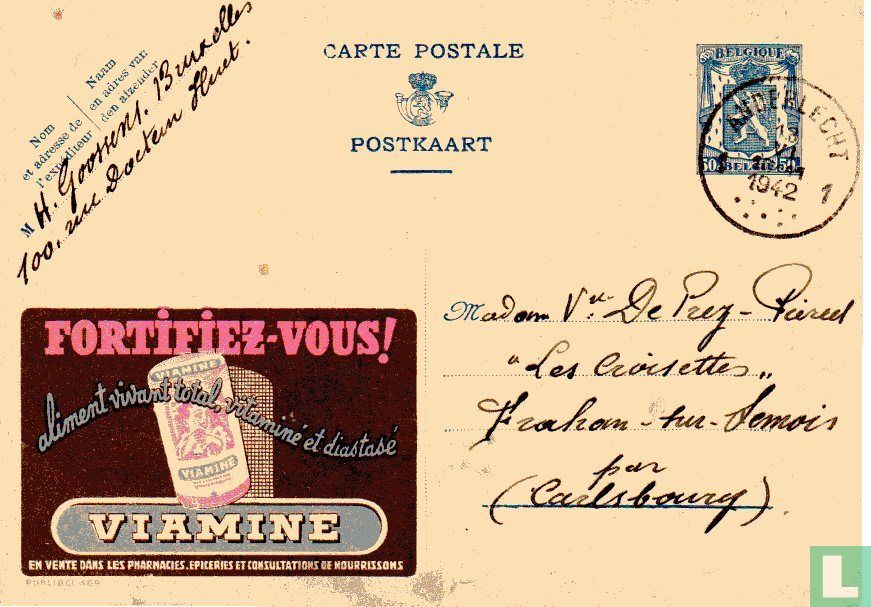 Nom
et adresse de
l'expéditeur
Naam
en adres van
den afzender
M H. Goossens, Bruxelles
100, rue Docteur Huet.
CARTE POSTALE
POSTKAART
BELGIQUE
50 BELGIË 50
ANDERLECHT
1 1
1942
FORTIFIEZ-VOUS!
aliment vivant total, vitaminé et diastasé
VIAMINE
VIAMINE
VIAMINE
EN VENTE DANS LES PHARMACIES, EPICERIES ET CONSULTATIONS DE NOURRISSONS
PUBLIBEL 469
Madam Vve De Prez - Piéreel
"Les Croisettes"
Frahan-sur-Semois
par
(Carlsbourg)
L